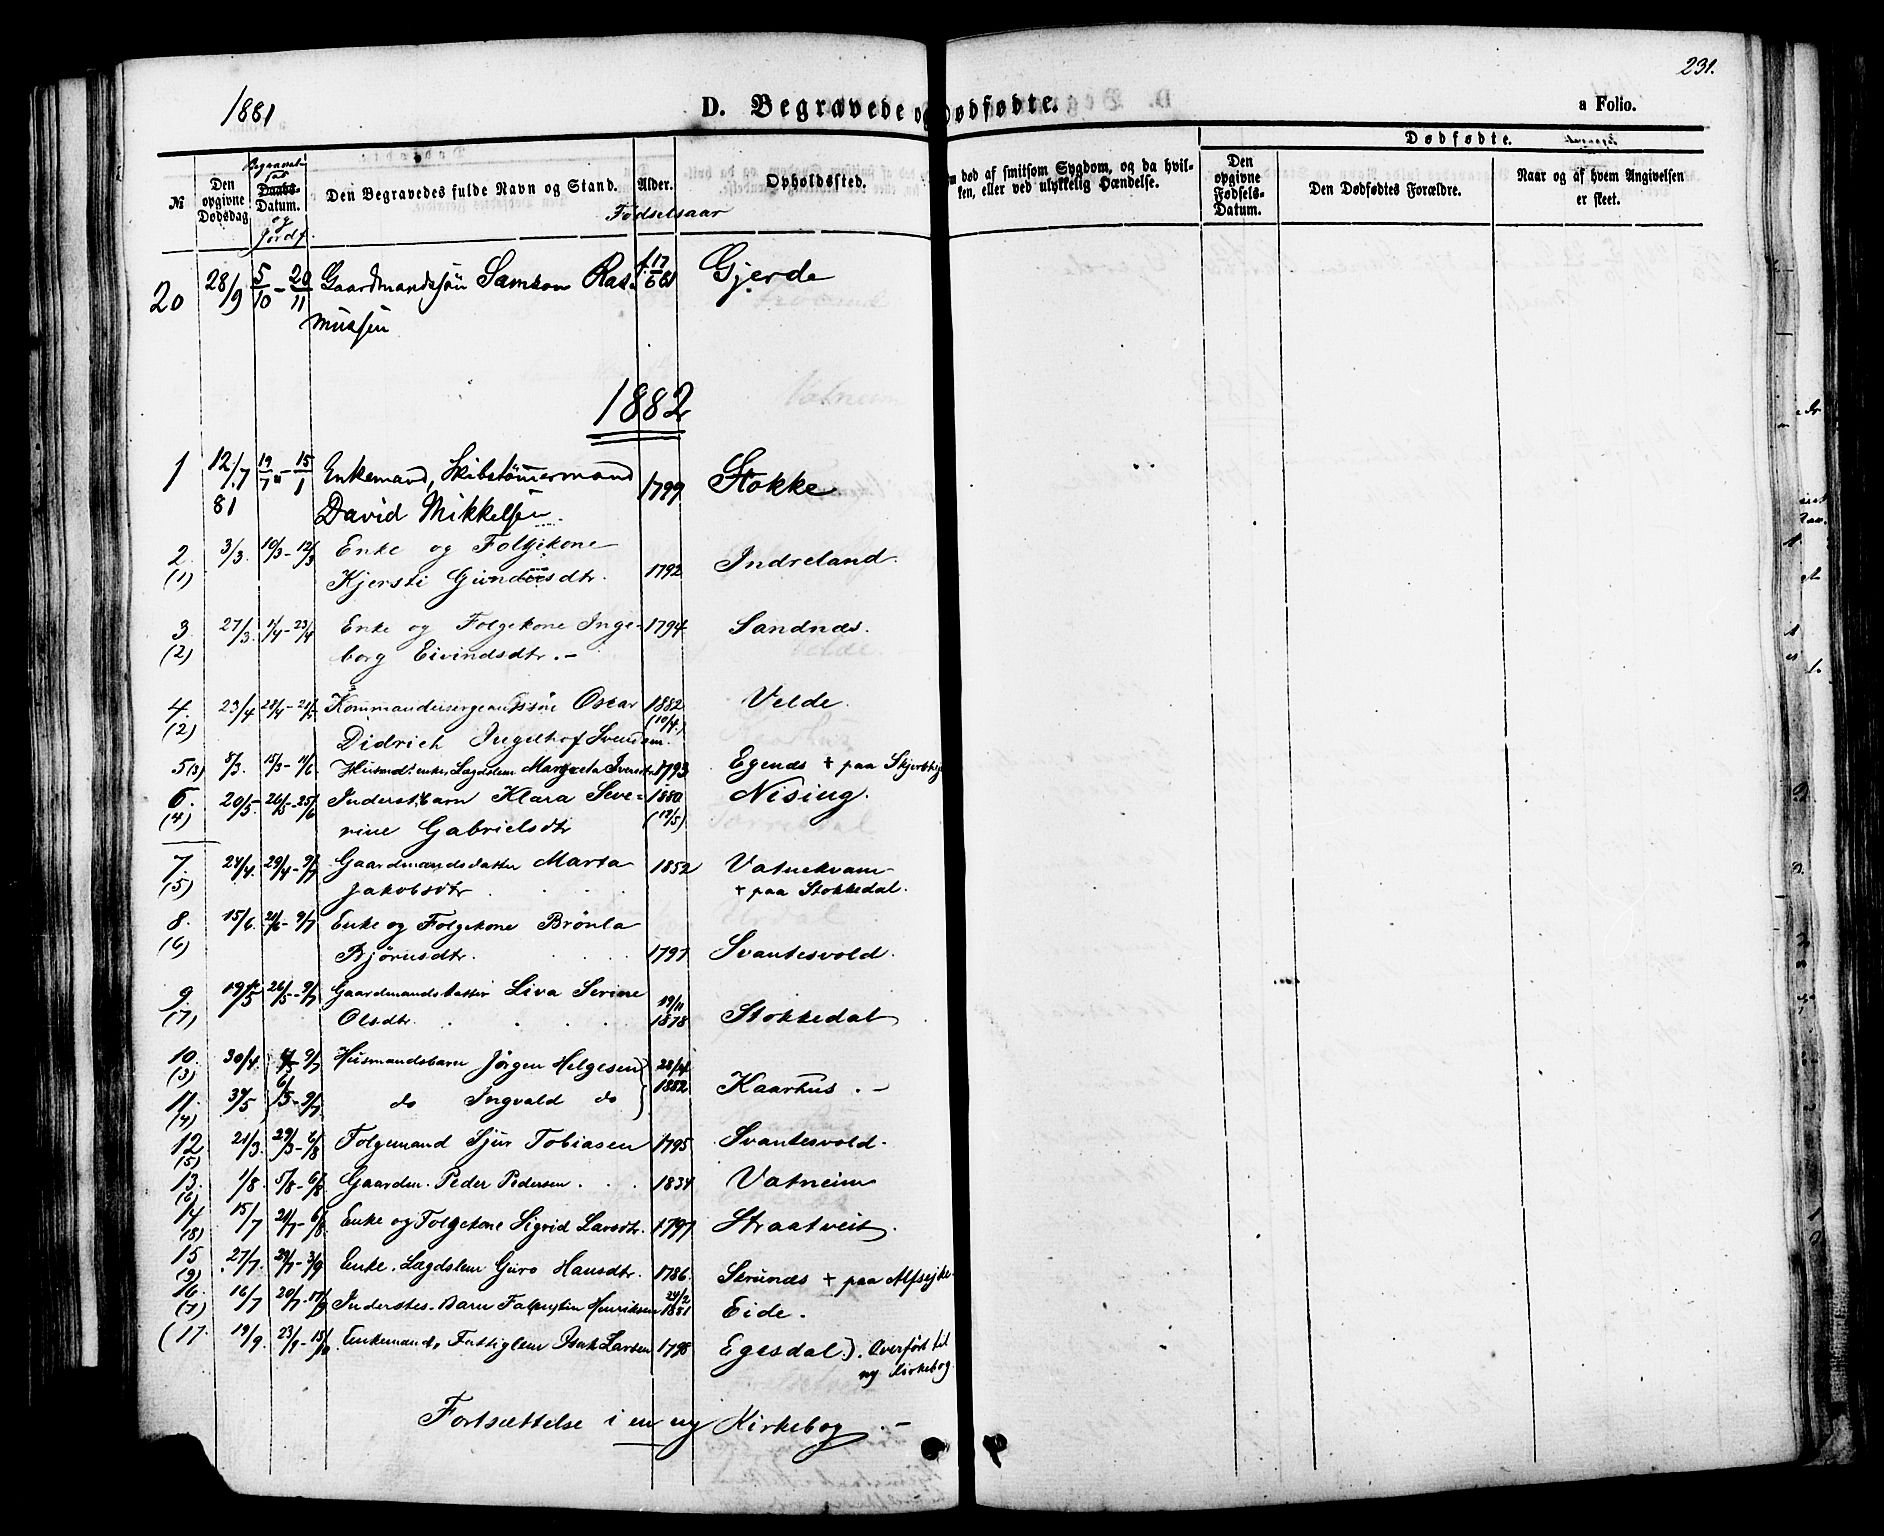 231.
1881
D. Begravede og Dødfødte.
a Folio.
Dødfødte.
№
Den opgivne Dødsdag
Begravel-
ses
Daabs-
Datum.
og
Jordf.
Den Begravedes fulde Navn og Stand.
Alder.
Fødselsaar
Opholdssted.
død af smitsom Sygdom, og da hvil-
ken, eller ved ulykkelig Hændelse.
Den opgivne Fødsels-Datum.
Den Dødfødtes Forældre.
Naar og af hvem Angivelsen
er skeet.
20 28/9 5/10 - 20/11 Gaardmandssøn Samson Ras- 17/6 61 Gjerde
mussen
1882
1 12/7 19/7 - 15/1 Enkemand, Skibstømmermand
81 David Mikkelsen 1799 Stokke
2. 3/3. 10/3 - 12/3 Enke og Folgekone
(1) Kjersti Gundersdtr. 1792 Indreland.
3. 27/3. 1/4 - 23/4 Enke og Folgekone Inge- 1794 Sandnæs.
(2) borg Eivindsdtr. -
4. 23/4 28/4 - 21/5 Kommandersergeantssøn Oscar 1882 Velde.
(2) Didrich Ingelhof Svendsen. (10/4.)
5 (3) 5/3. 15/3 - 11/6 Husmds enke, Lægdslem Margreta Iversdtr 1793 Egenæs + paa
6. 20/5 - 26/5 - 25/6 Inderst. barn Klara Seve- 1880 Nising.
(4) rine Gabrielsdtr (17/5)
7. 24/4. 29/4 - 9/7 Gaardmandsdatter Marta 1852 Vatnekvam
(5) Jakobsdtr + paa Stokkedal.
8. 15/6. 21/6 - 9/7 Enke og Folgekone Brønla
(6) Bjørnsdtr. 1797 Svantesvold.
9. 19/5 26/5 - 9/7 Gaardmandsdatter Liva Serine 19/11
(7) Olsdtr. 1878 Stokkedal
10. 30/4 9/7 Husmandsbarn Jörgen Helgesen 28/4
(3) 1882 Kaarhus. -
11. 3/5 - 9/7 do Ingvald do
(4)
12 21/3 29/3 - 6/8 Folgemand Sjur Tobiasen 1795 Svantesvold.
(5)
13. 1/8. 5/8 - 6/8 Gaardm. Peder Pedersen 1834 Vatneim
(6)
14 15/7 21/7 - 6/8 Enke og Folgekone Sigrid Larsdtr. 1797 Straatveit.
(8)
15 27/7. 29/7 - 3/9 Enke. Lægdslem Guro Hansdtr. 1786. Strunæs + paa Alfsejke.
(9)
16. 16/7 20/7 - 17/9 Inderstes Barn Henriksen 24/2 1881 Eide.
(7)
(17. 19/9. 23/9 - 15/10 Enkemand, Fattiglem Isak Larsen 1798 Egesdal). Overført til
ny Kirkebog.
Fortsættelse i en ny Kirkebog. -